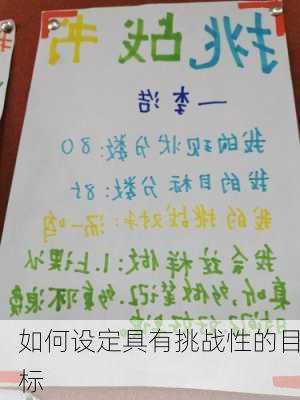 挑战书
—李浩
我的现状分数:80
我的目标分数:85
我的挑战对手:汤一
我会这样做:1.上课认
真听,多做笔记.2.多复习不浪费
如何设定具有挑战性的目
标